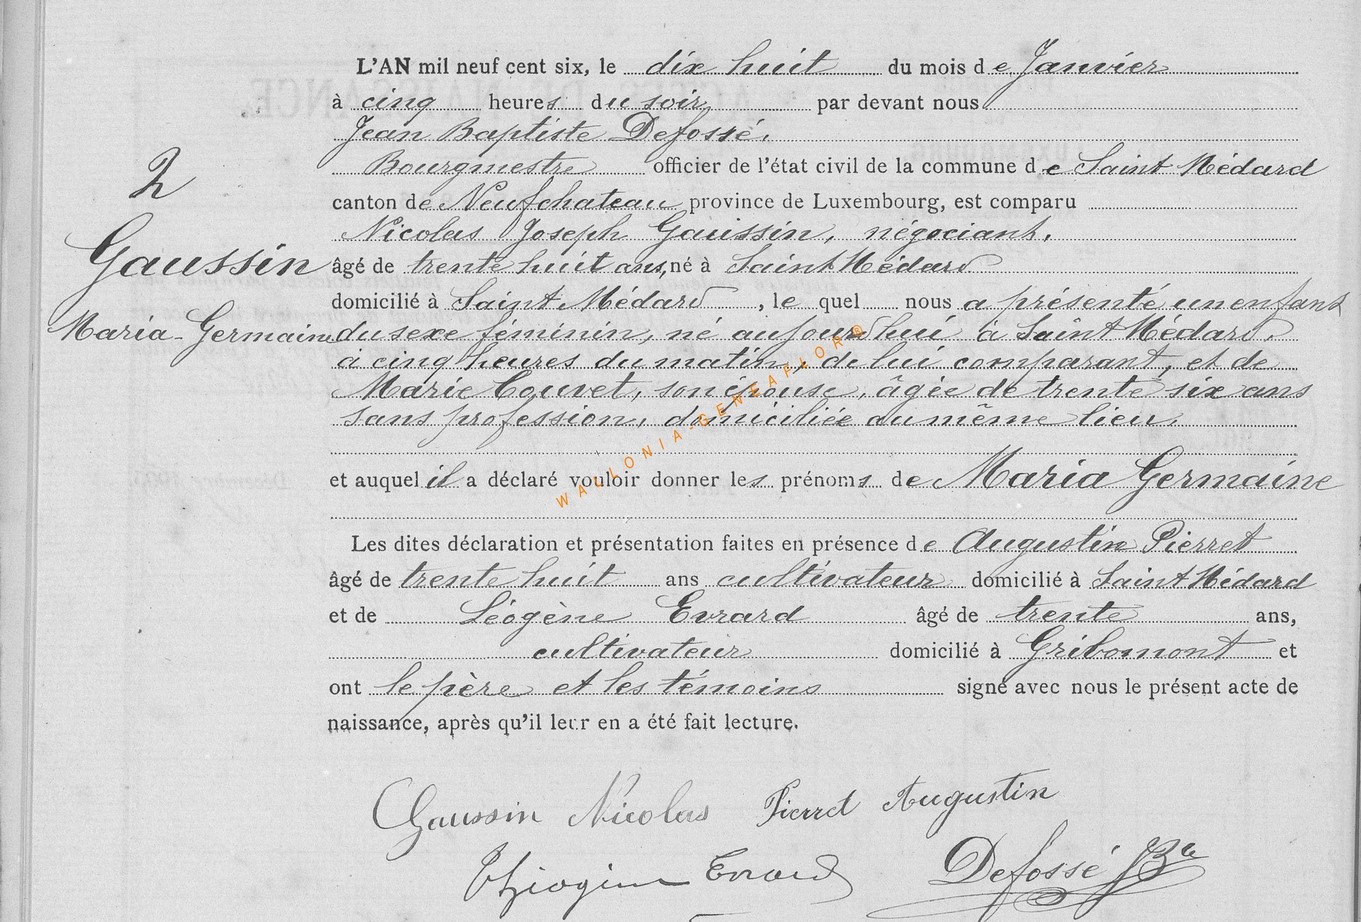 L'AN mil neuf cent six, le dix huit du mois de Janvier
à cinq heures du soir, par devant nous
Jean Baptiste Defossé,
Bourgmestre officier de l'état civil de la commune de Saint Médard
canton de Neufchateau province de Luxembourg, est comparu
Nicolas Joseph Gaussin, négociant,
âgé de trente huit ans, né à Saint Médard
domicilié à Saint Médard, le quel nous a présenté un enfant
du sexe féminin, né aujourdhui à Saint Médard,
à cinq heures du matin, de lui comparant, et de
Marie Couvet, son épouse, âgée de trente six ans
sans profession, domiciliée au même lieu,
et auquel il a déclaré vouloir donner les prénoms de Maria Germaine
Les dites déclaration et présentation faites en présence de Augustin Pierret
âgé de trente huit ans cultivateur domicilié à Saint Médard
et de Léogène Evrard âgé de trente ans,
cultivateur domicilié à Gribomont et
ont le père et les témoins signé avec nous le présent acte de
naissance, après qu'il leur en a été fait lecture.
2
Gaussin
Maria-Germaine
WALLONIA-GENEAFLOR®
Gaussin Nicolas Pierret Augustin
Evrard Defossé JBte